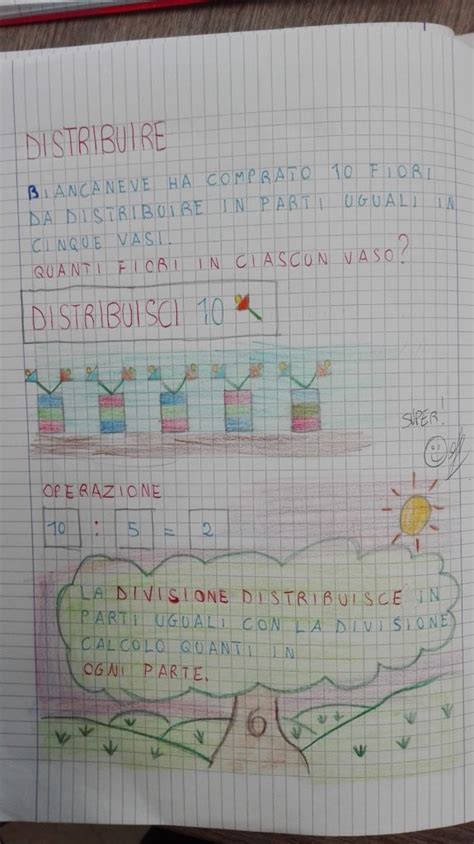 DISTRIBUIRE
BIANCANEVE HA COMPRATO 10 FIORI
DA DISTRIBUIRE IN PARTI UGUALI IN
CINQUE VASI.
QUANTI FIORI IN CIASCUN VASO?
DISTRIBUISCI 10
SUPER!
OPERAZIONE
10 : 5 = 2
LA DIVISIONE DISTRIBUISCE IN
PARTI UGUALI CON LA DIVISIONE
CALCOLO QUANTI IN
OGNI PARTE.
6